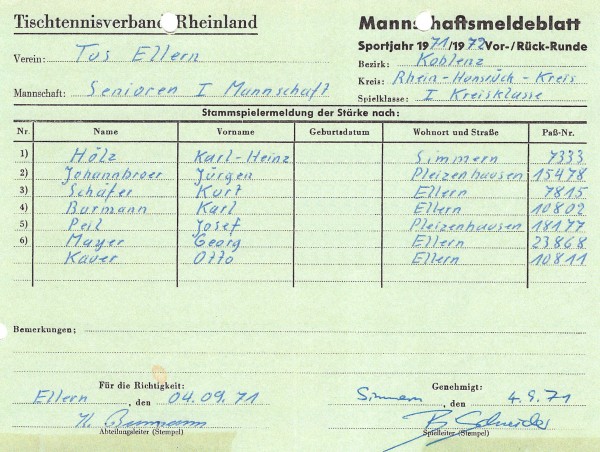 Tischtennisverband Rheinland
Mannschaftsmeldeblatt
Sportjahr 1971/1972 Vor-/Rück-Runde
Verein: Tus Ellern
Bezirk: Koblenz
Kreis: Rhein-Hunsrück-Kreis
Mannschaft: Senioren I Mannschaft
Spielklasse: I Kreisklasse
Stammspielermeldung der Stärke nach:
Nr. Name Vorname Geburtsdatum Wohnort und Straße Paß-Nr.
1) Hölz Karl-Heinz Simmern 7333
2) Johannbroer Jürgen Pleizenhausen 15478
3) Schäfer Kurt Ellern 7815
4) Burmann Karl Ellern 10802
5) Peil Josef Pleizenhausen 18177
6) Mayer Georg Ellern 23868
Kauer Otto Ellern 10811
Bemerkungen:
Für die Richtigkeit: Genehmigt:
Ellern, den 04.09.71 Simmern, den 4.9.71
K. Burmann B. Schneider
Abteilungsleiter (Stempel) Spielleiter (Stempel)